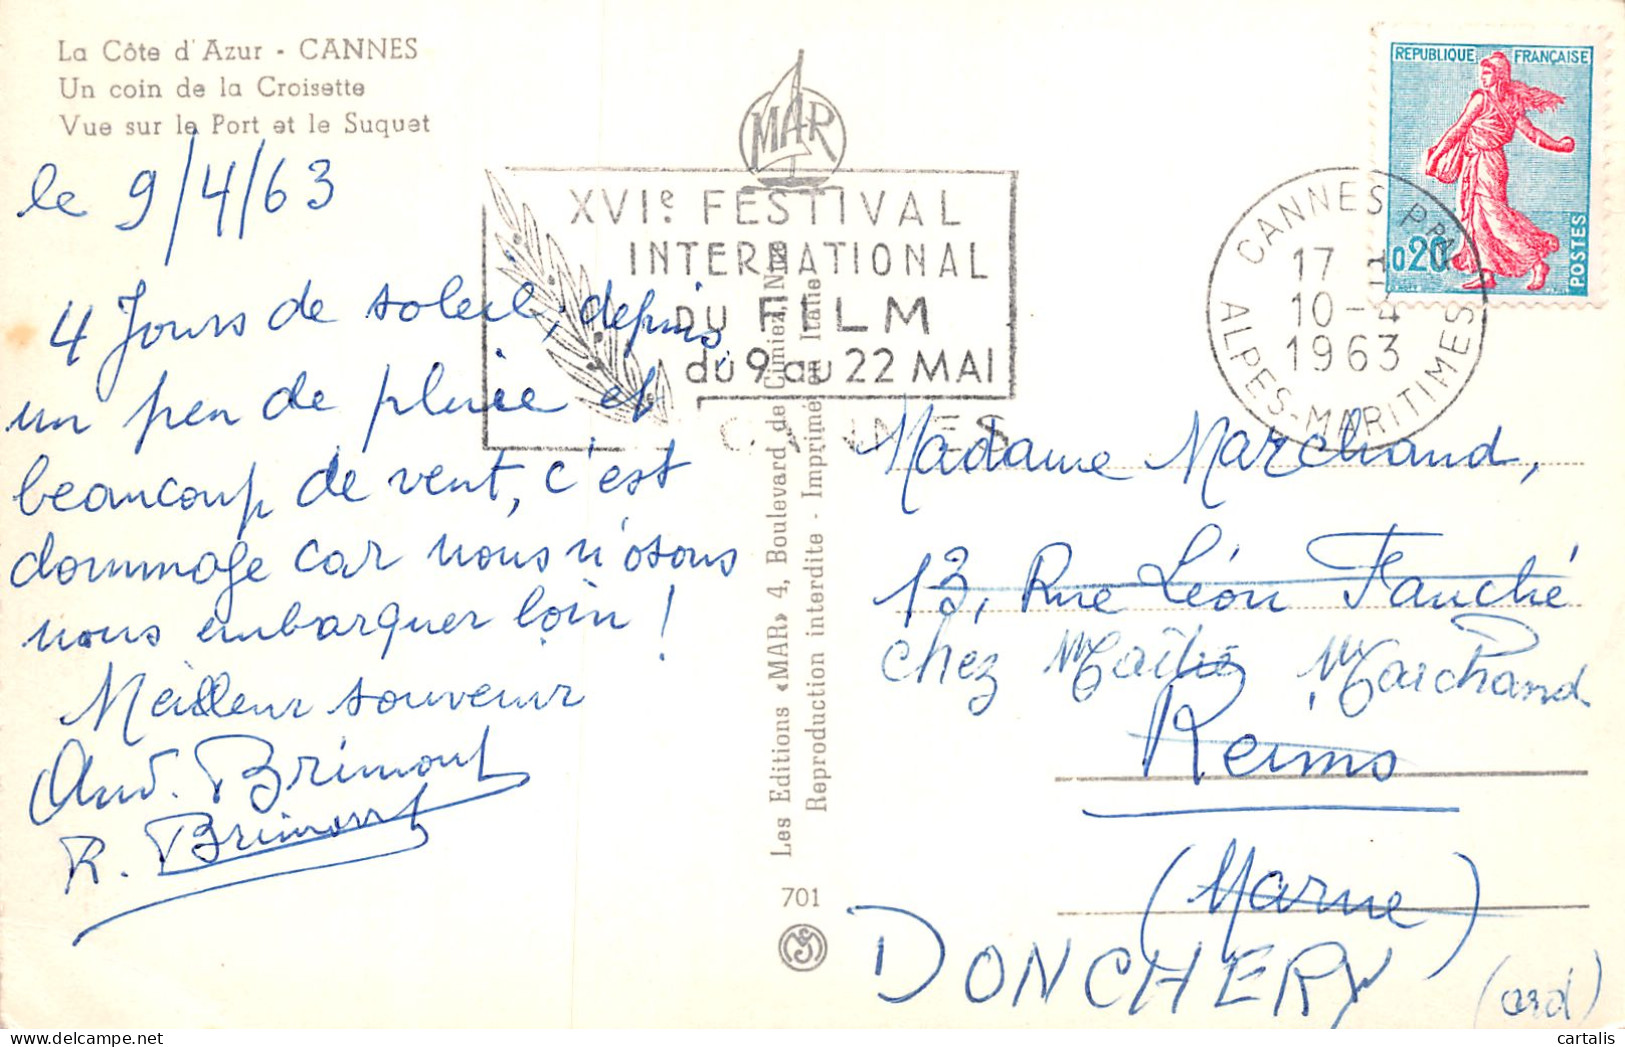 La Côte d'Azur - CANNES
Un coin de la Croisette
Vue sur le Port et le Suquet
le 9/4/63
4 Jours de soleil, depuis
un peu de pluie et
beaucoup de vent, c'est
dommage car nous n'osons
nous embarquer loin !
Meilleur souvenir
And. Brimont
R. Brimont
MAR
XVIe FESTIVAL
INTERNATIONAL
DU FILM
du 9 au 22 MAI
CANNES
Les Editions «MAR» 4, Boulevard de Cimiez, Nice
Reproduction interdite - Imprimé en Italie
701
REPUBLIQUE FRANÇAISE
0,20
POSTES
CANNES PPAL
17 H
10-4
1963
ALPES-MARITIMES
Madame Marchand,
13, Rue Léon Fauché
chez Maître Marchand
Reims
(Marne)
DONCHERY
(ard)
cartalis